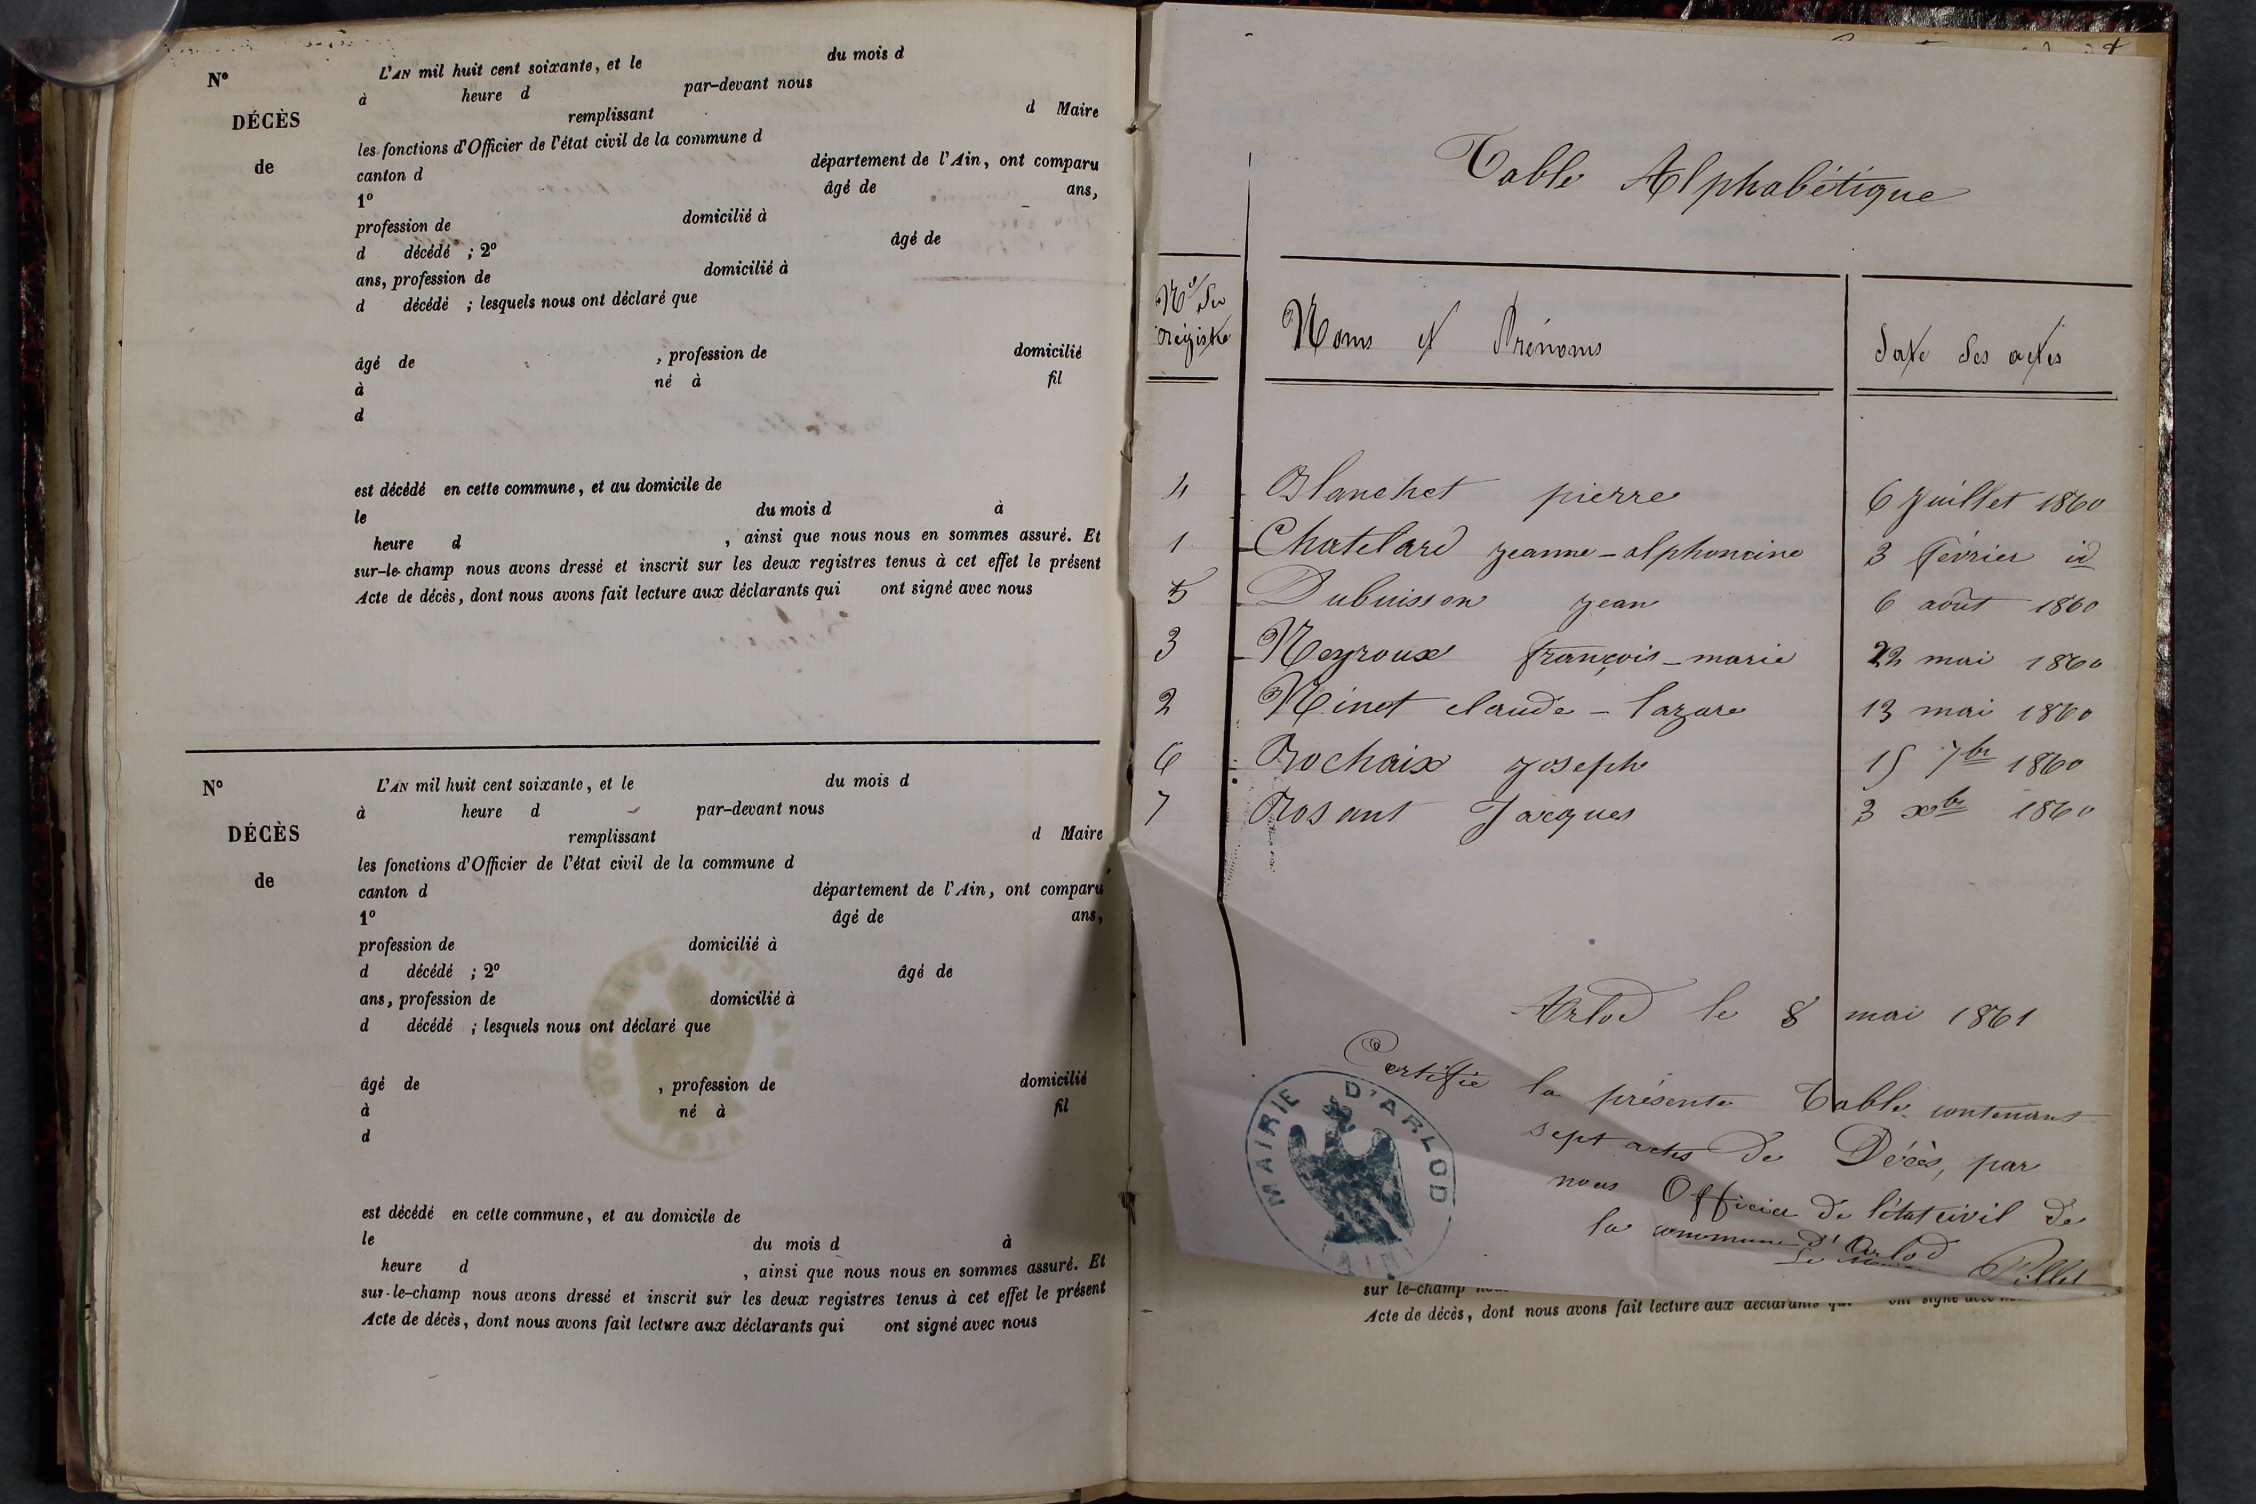 N° L'AN mil huit cent soixante, et le du mois d
à heure d par-devant nous
DÉCÈS remplissant d Maire
les fonctions d'Officier de l'état civil de la commune d
de canton d département de l'Ain, ont comparu
1° âgé de ans,
profession de domicilié à
d décédé ; 2° âgé de
ans, profession de domicilié à
d décédé ; lesquels nous ont déclaré que
âgé de , profession de domicilié
à né à fil
d
est décédé en cette commune, et au domicile de
le du mois d à
heure d , ainsi que nous nous en sommes assuré. Et
sur-le-champ nous avons dressé et inscrit sur les deux registres tenus à cet effet le présent
Acte de décès, dont nous avons fait lecture aux déclarants qui ont signé avec nous
N° L'AN mil huit cent soixante, et le du mois d
à heure d par-devant nous
DÉCÈS remplissant d Maire
les fonctions d'Officier de l'état civil de la commune d
de canton d département de l'Ain, ont comparu
1° âgé de ans,
profession de domicilié à
d décédé ; 2° âgé de
ans, profession de domicilié à
d décédé ; lesquels nous ont déclaré que
âgé de , profession de domicilié
à né à fil
d
est décédé en cette commune, et au domicile de
le du mois d à
heure d , ainsi que nous nous en sommes assuré. Et
sur-le-champ nous avons dressé et inscrit sur les deux registres tenus à cet effet le présent
Acte de décès, dont nous avons fait lecture aux déclarants qui ont signé avec nous
Table Alphabétique
Nos du registre Noms et Prénoms date des actes
4 Blanchet pierre 6 juillet 1860
1 Chatelard jeanne-alphonsine 3 février id
5 Dubuisson jean 6 août 1860
3 Neyroux françois-marie 22 mai 1860
2 Ninet claude-lazare 13 mai 1860
6 Rochaix joseph 15 7bre 1860
7 Rosant Jacques 3 xbre 1860
Arlod le 8 mai 1861
Certifié la présente Table contenant
sept actes de Décès, par
nous Officier de l'état civil de
la commune d'Arlod
Le Maire Pillet
MAIRIE D'ARLOD
(AIN)
sur le-champ
Acte de décès, dont nous avons fait lecture aux déclarants